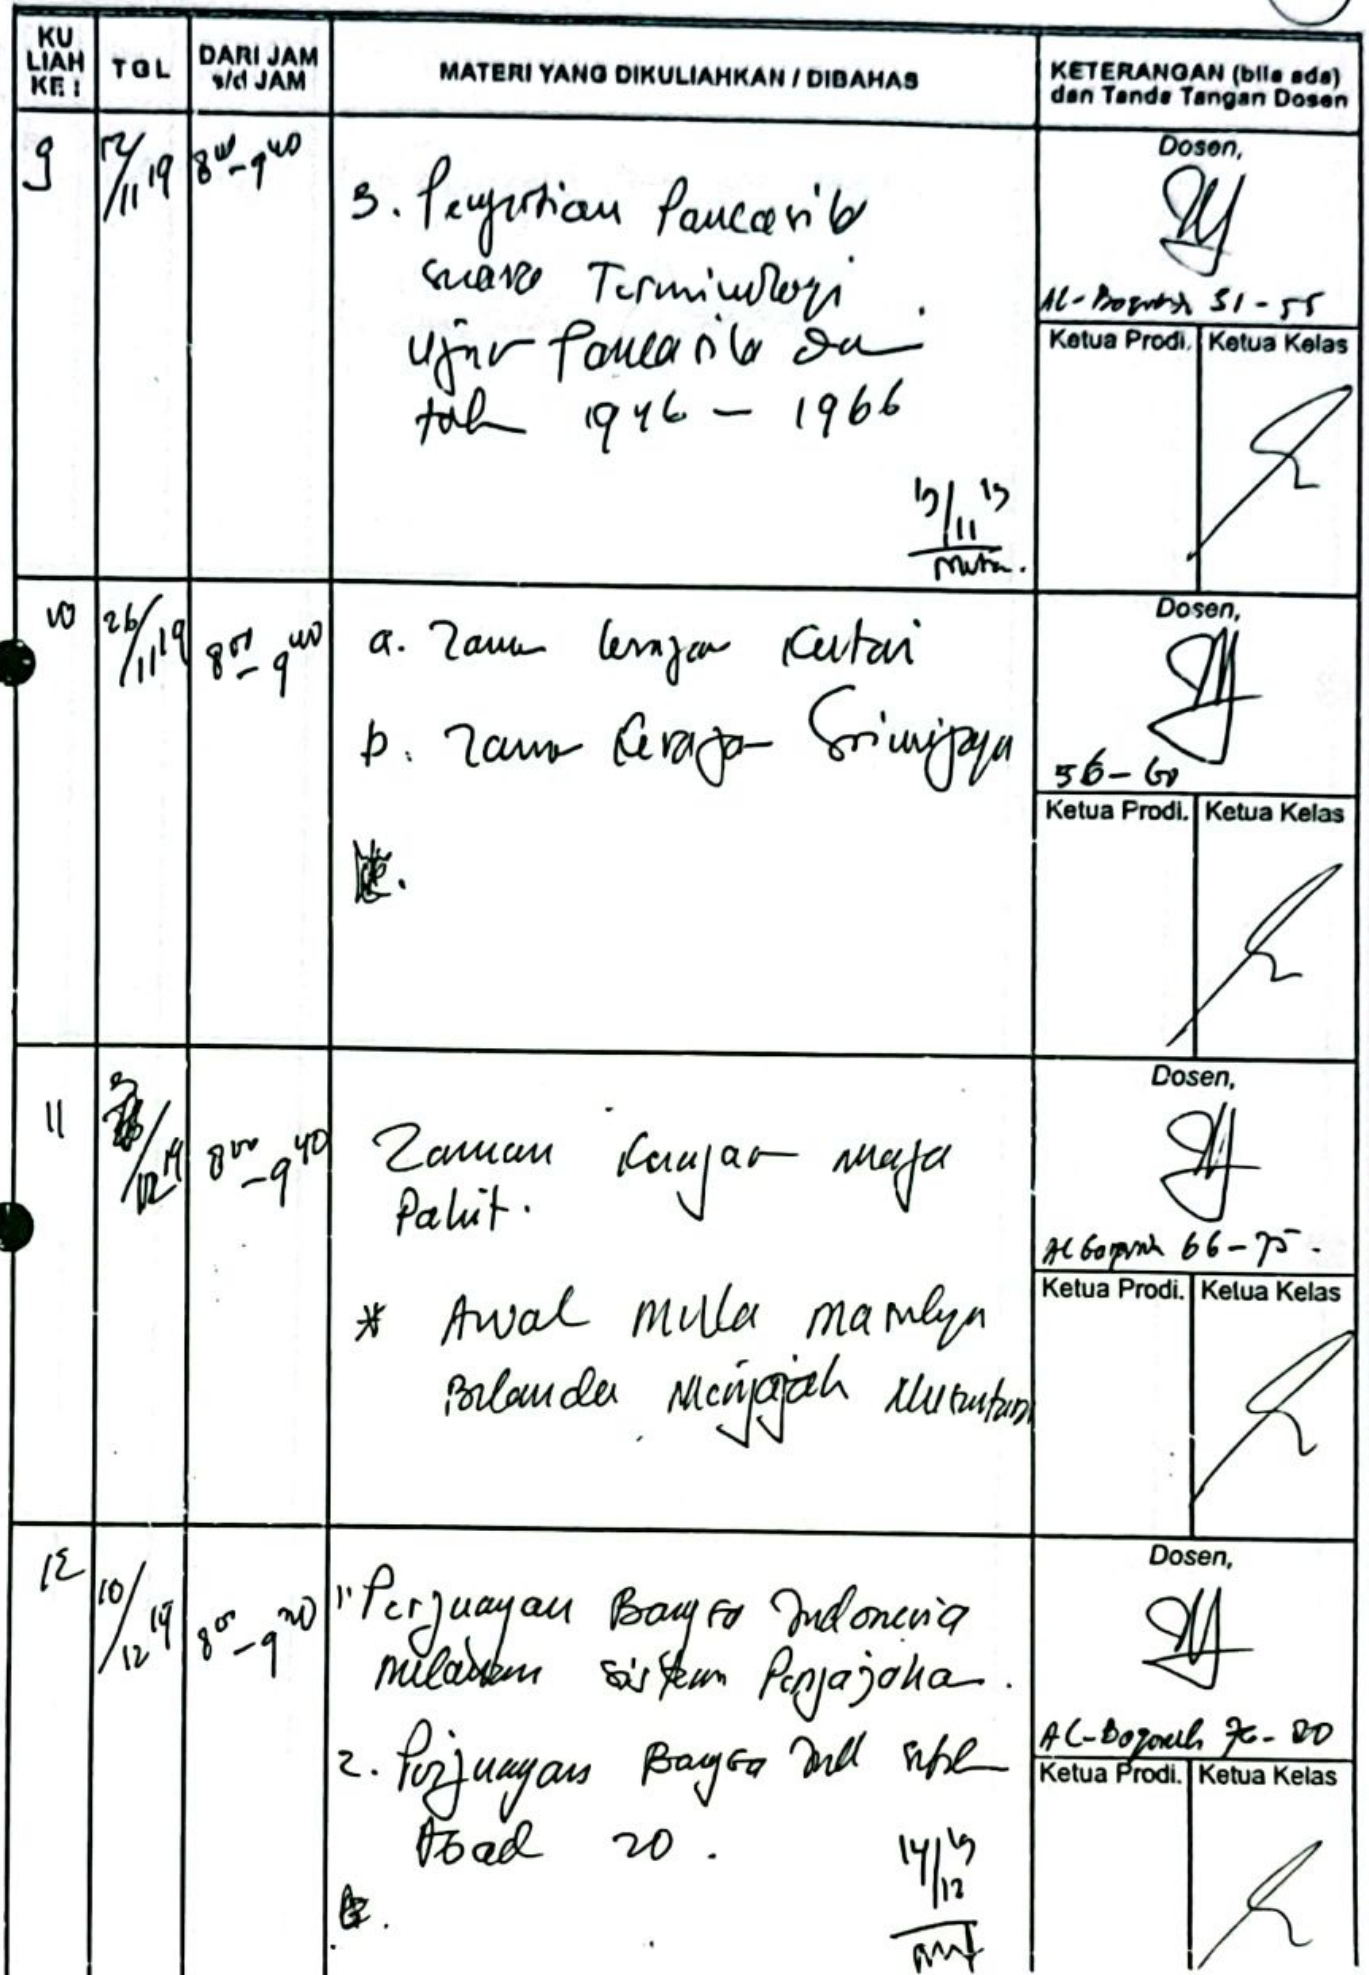 KU
LIAH
KE :
TGL
DARI JAM
s/d JAM
MATERI YANG DIKULIAHKAN / DIBAHAS
KETERANGAN (bila ada)
dan Tanda Tangan Dosen
9
12/11 19
8 00 - 9 40
3. Pengertian Pancasila
secara Terminologi
Ujur Pancasila
1946 - 1966
11
Dosen,
51 - 55
Ketua Prodi.
Ketua Kelas
10
26/11 19
8 00 - 9 40
a. Zaman Kerajaan Kutai
b. Zaman Kerajaan Sriwijaya
Dosen,
56 - 60
Ketua Prodi.
Ketua Kelas
11
12 19
8 00 - 9 40
Zaman Kerajaan Maja
Pahit.
* Awal Mula Masuknya
Belanda Menjajah Nusantara
Dosen,
66 - 75.
Ketua Prodi.
Ketua Kelas
12
10/12 19
8 00 - 9 40
1. Perjuangan Bangsa Indonesia
melawan sistem Penjajahan.
2. Perjuangan Bangsa Ind
Abad 20.
14/12 19
Dosen,
Al-Baqarah 76 - 80
Ketua Prodi.
Ketua Kelas